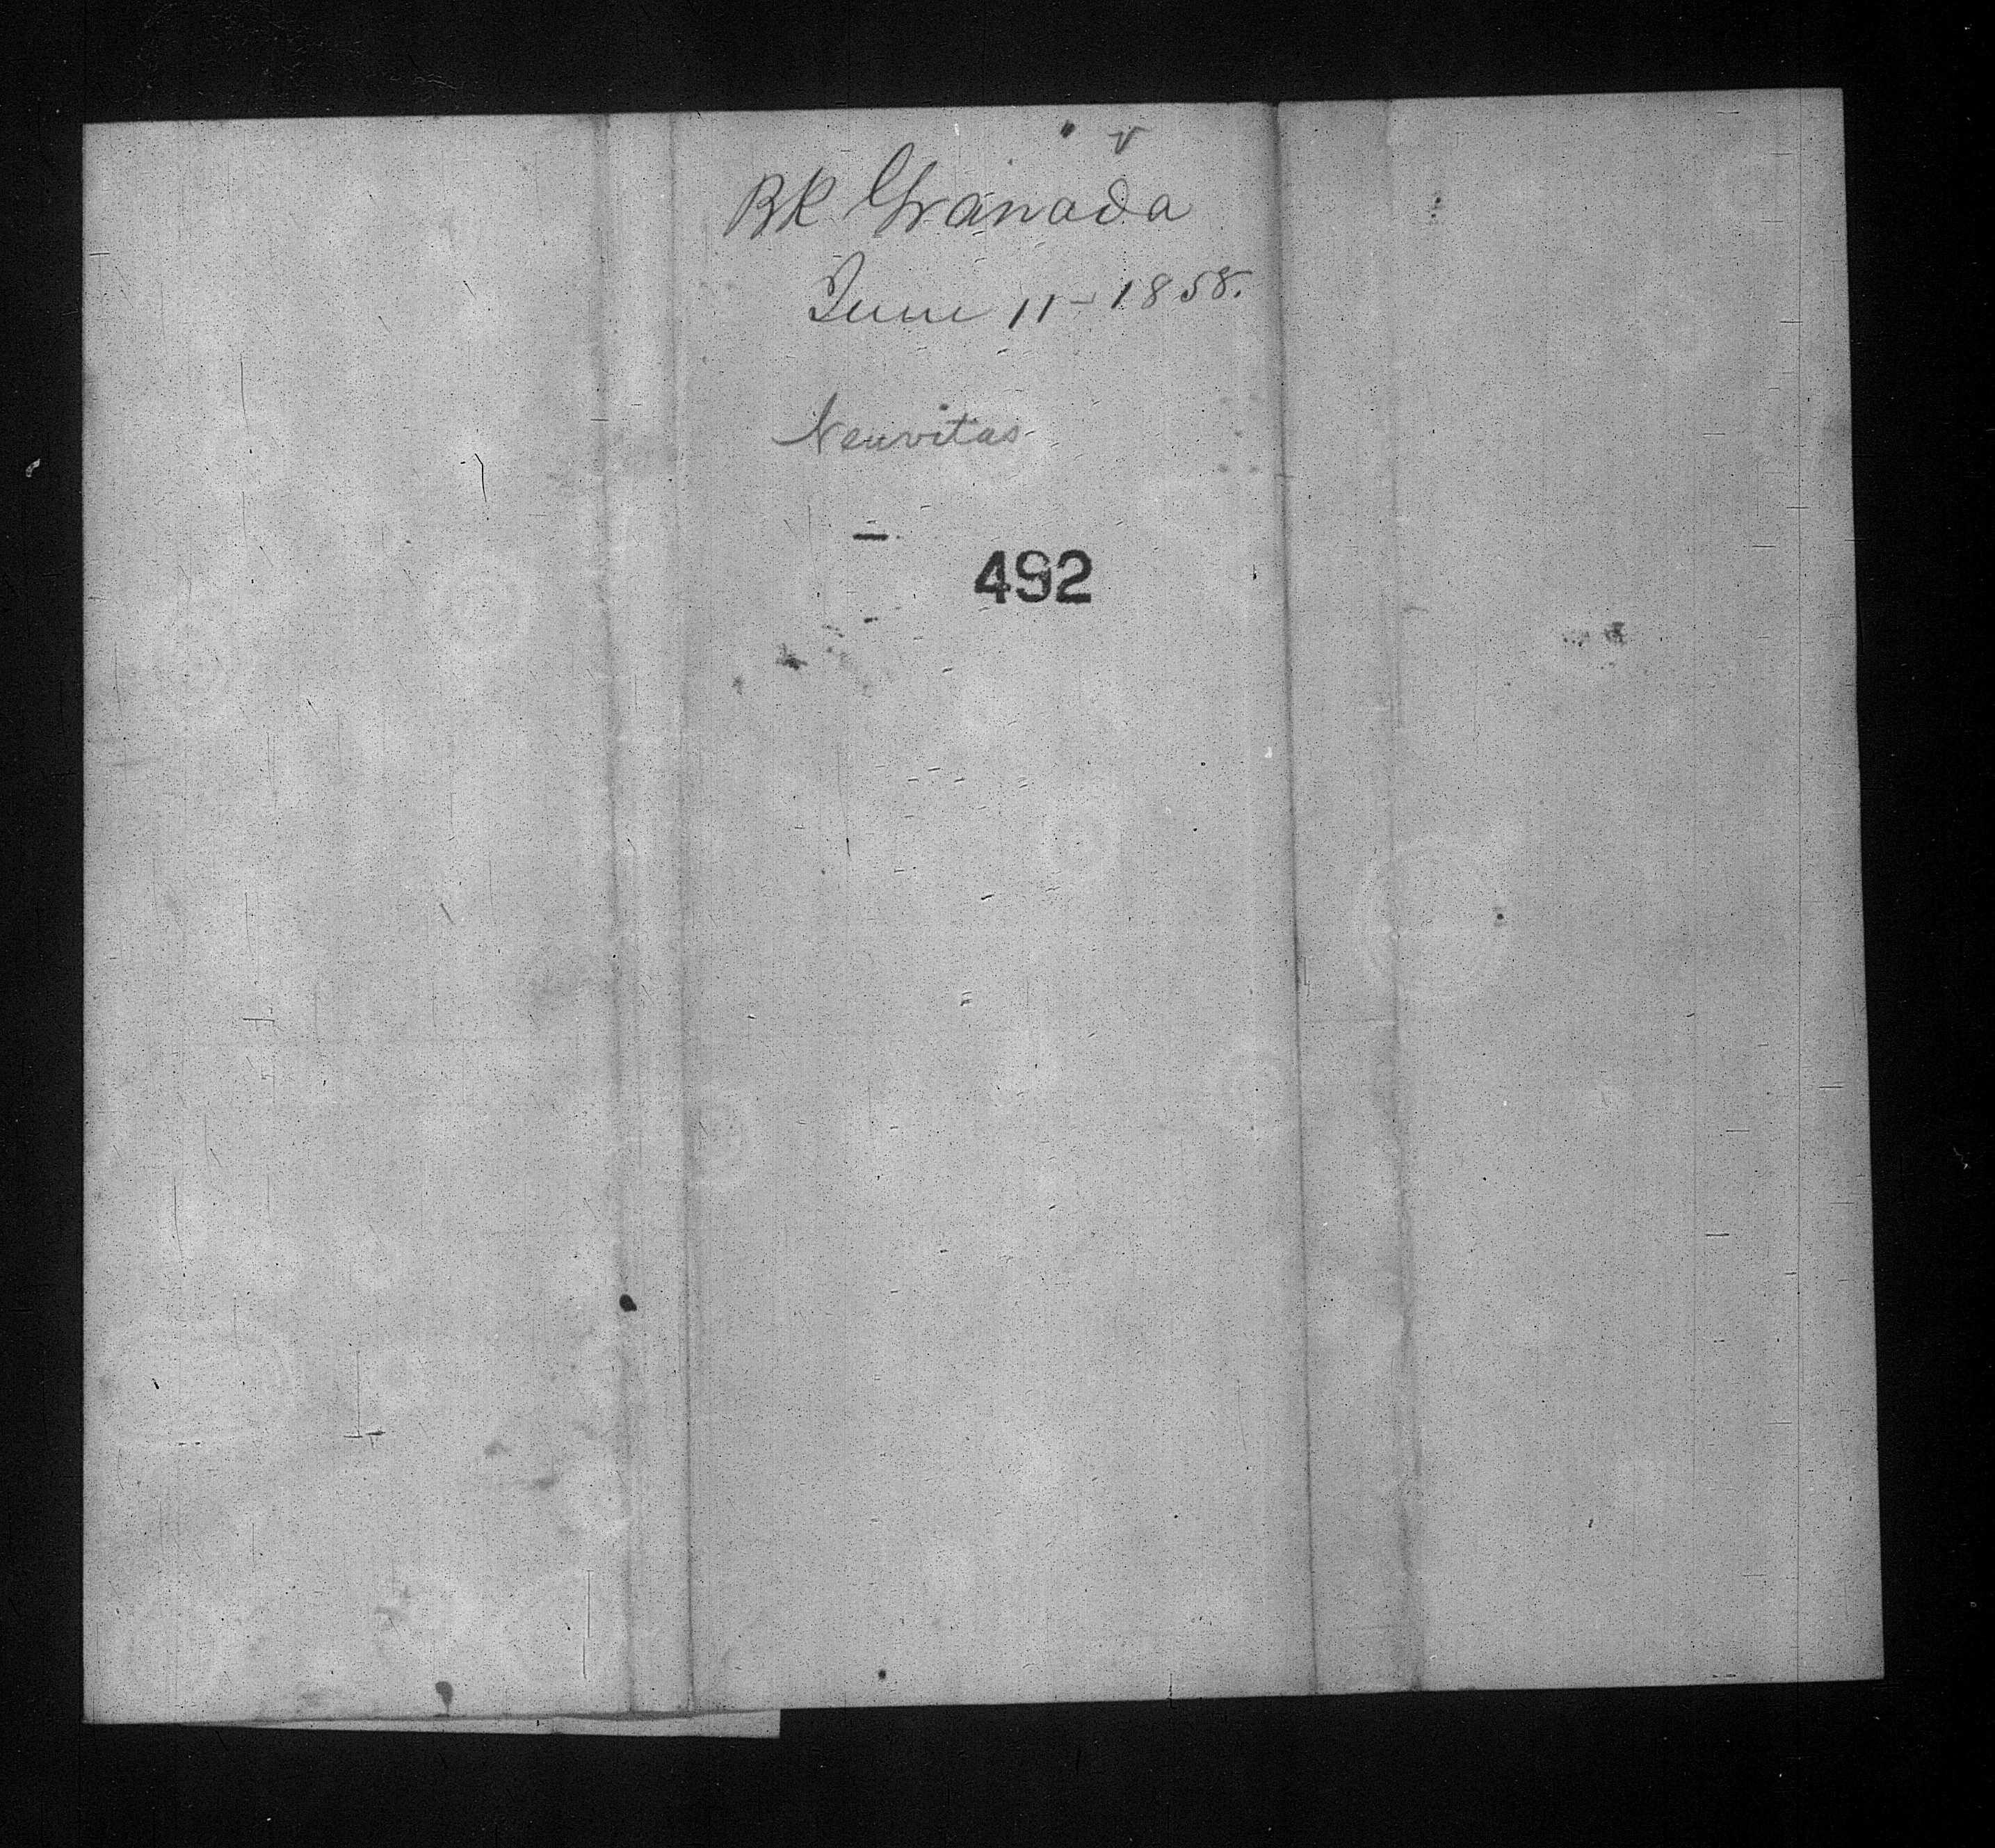 v
BK Granada
June 11 - 1858.
Neuvitas
492